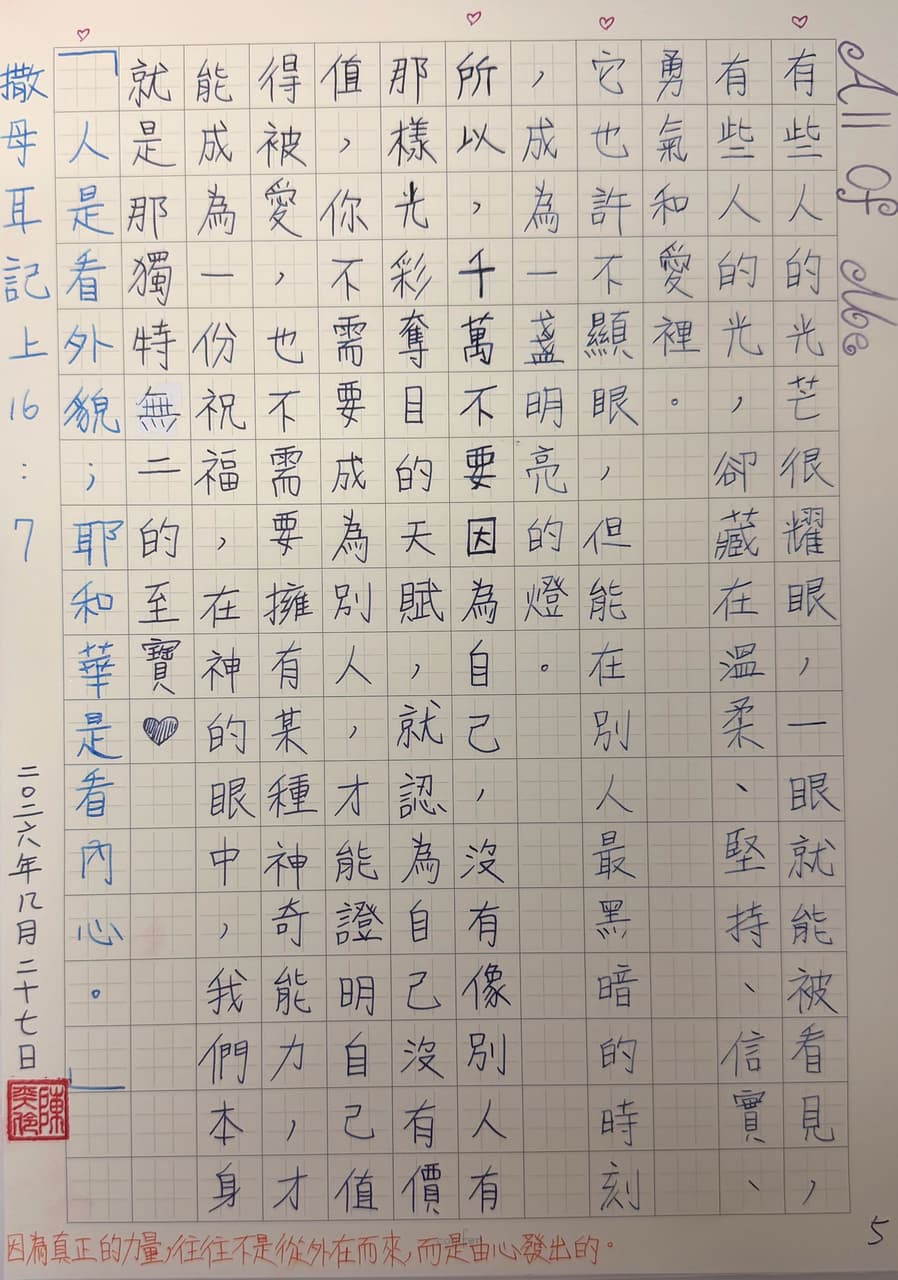 All Of Me
有些人的光芒很耀眼，一眼就能被看見，
有些人的光，卻藏在溫柔、堅持、信實、
勇氣和愛裡。
它也許不顯眼，但能在別人最黑暗的時刻
，成為一盞明亮的燈。
所以，千萬不要因為自己，沒有像別人有
那樣光彩奪目的天賦，就認為自己沒有價
值，你不需要成為別人，才能證明自己值
得被愛，也不需要擁有某種神奇能力，才
能成為一份祝福，在神的眼中，我們本身
就是那獨特無二的至寶♥
「人是看外貌；耶和華是看內心。」
撒母耳記上16:7
二〇二六年八月二十七日
因為真正的力量，往往不是從外在而來，而是由心發出的。
5